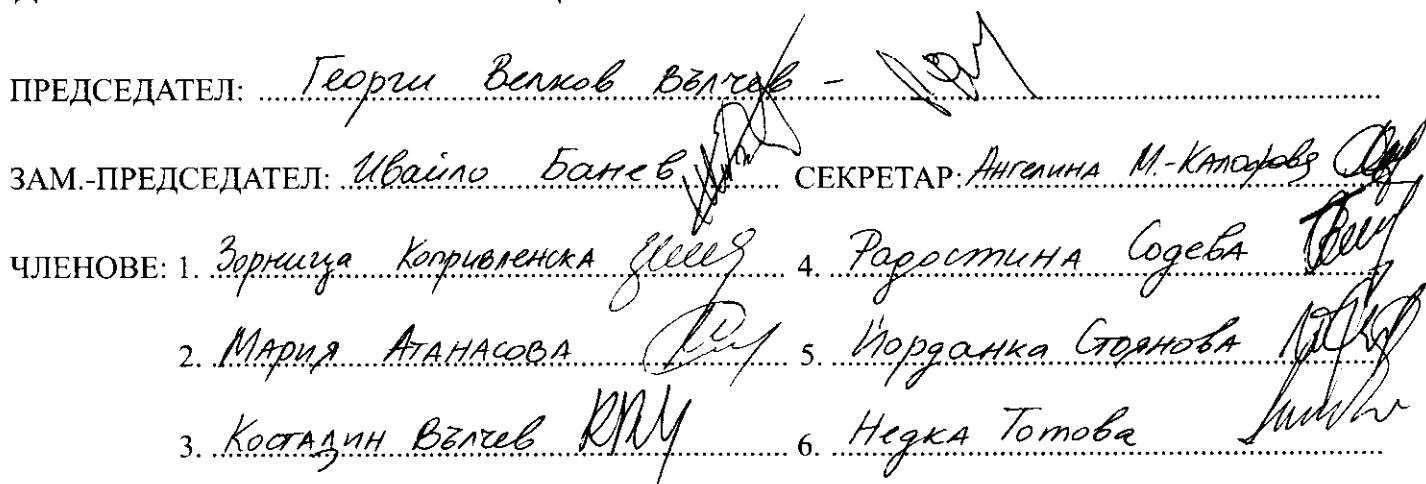 ПРЕДСЕДАТЕЛ: Георги Велков Вълчев -
ЗАМ.-ПРЕДСЕДАТЕЛ: Ивайло Банев СЕКРЕТАР: Ангелина М.-
ЧЛЕНОВЕ: 1. Зорница Копривленска 4. Радостина Содева
2. Мария Атанасова 5. Йорданка Стоянова
3. Костадин Вълчев 6. Недка Тотова